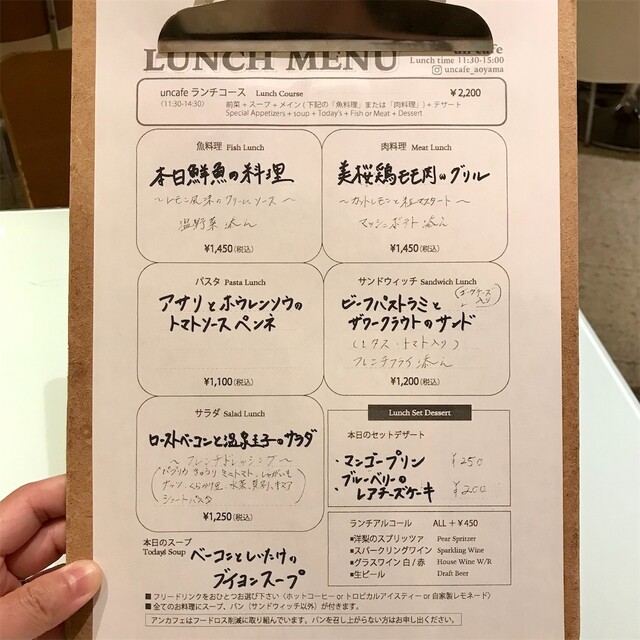 LUNCH MENU
un cafe
Lunch time 11:30-15:00
uncafe_aoyama
uncafe ランチコース Lunch Course ¥2,200
(11:30-14:30) 前菜+スープ+メイン(下記の「魚料理」または「肉料理」)+デザート
Special Appetizers + soup + Today's + Fish or Meat + Dessert
魚料理 Fish Lunch
本日鮮魚の料理
〜レモン風味のクリームソース〜
温野菜添え
¥1,450(税込)
肉料理 Meat Lunch
美桜鶏モモ肉のグリル
〜カットレモンと粒マスタード〜
マッシュポテト添え
¥1,450(税込)
パスタ Pasta Lunch
アサリとホウレンソウの
トマトソース ペンネ
¥1,100(税込)
サンドウィッチ Sandwich Lunch
ビーフパストラミと
ザワークラウトのサンド
入り
(レタス・トマト入り)
フレンチフライ添え
¥1,200(税込)
サラダ Salad Lunch
ローストベーコンと温泉玉子のサラダ
〜フレンチドレッシング〜
パプリカ きゅうり ミニトマト じゃがいも
ナッツ 水菜
ショートパスタ
¥1,250(税込)
Lunch Set Dessert
本日のセットデザート
・マンゴープリン ¥250
・ブルーベリーの
レアチーズケーキ ¥200
本日のスープ
Today's Soup
ベーコンとしいたけの
ブイヨンスープ
ランチアルコール ALL +¥450
■洋梨のスプリッツァ Pear Spritzer
■スパークリングワイン Sparkling Wine
■グラスワイン 白/赤 House Wine W/R
■生ビール Draft Beer
■フリードリンクをおひとつお選び下さい(ホットコーヒー or トロピカルアイスティー or 自家製レモネード)
■全てのお料理にスープ、パン(サンドウィッチ以外)が付きます。
アンカフェはフードロス削減に取り組んでいます。パンを召し上がらない方はお申し出ください。